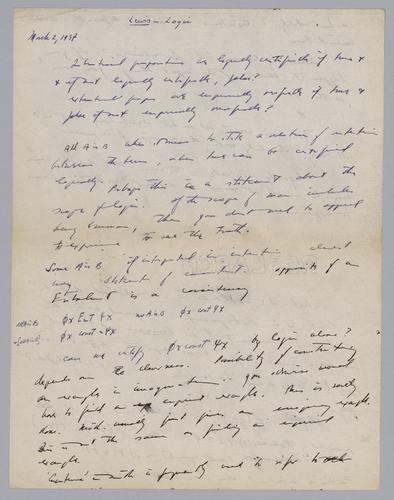 Lewis – Logic
March 2, 1937.
Intensional propositions are logically certifiable if true &
if not logically certifiable, false?
extensional props are empirically certifiable if true &
false if not empirically certifiable?
All A is B when known to state a relation of intension
between the terms, when true can be certified
logically. Perhaps this is a statement about the
scope of logic. If the scope of man includes
being human, then you don't need to appeal
to experience to see the truth.
Some A is B if interpreted in intension
way statement of consistent. opposite of an
Entailment is a consistency
φx Ent ψx no A is B φx cont ψx
φx const ψx
can we certify φx const ψx by logic alone?
depends on the clearness. Possibility of constructing
an example in imagination. you otherwise would
have to find an empirical example. This is rarely
done. Math. usually just gives an imaginary example.
This is not the same as finding an empirical
example.
is frequently used to refer to